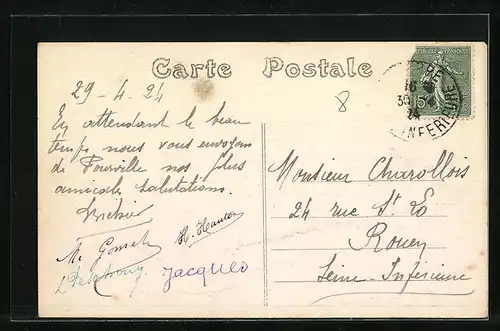 Carte Postale
29-4-24
En attendant le beau
temps nous vous envoyons
de Pourville nos plus
amicales salutations.
H. Hauton
M.
Jacques
8
REPUBLIQUE FRANCAISE
15
24
INFERIEURE
Monsieur Charollois
24 rue St Lo
Rouen
Seine-Inférieure